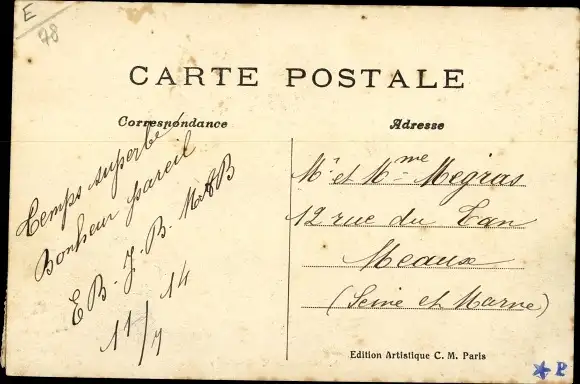 E
78
CARTE POSTALE
Correspondance
Adresse
Temps superbe
Bonheur pareil
E B. J. B. MAB
11/7 14
Mr et Mme Megras
12 rue du Tan
Meaux
(Seine et Marne)
Edition Artistique C. M. Paris
P